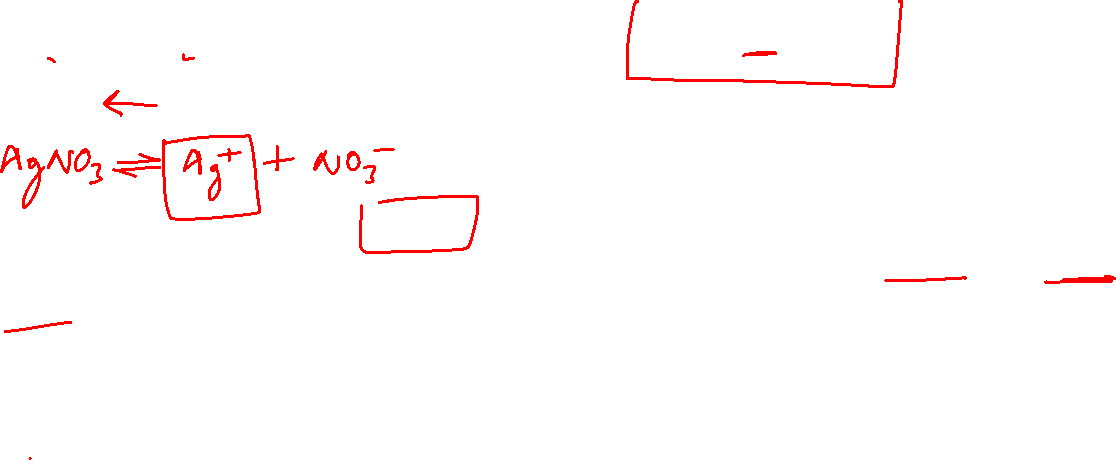 AgNO₃ ⇌ Ag⁺ + NO₃⁻